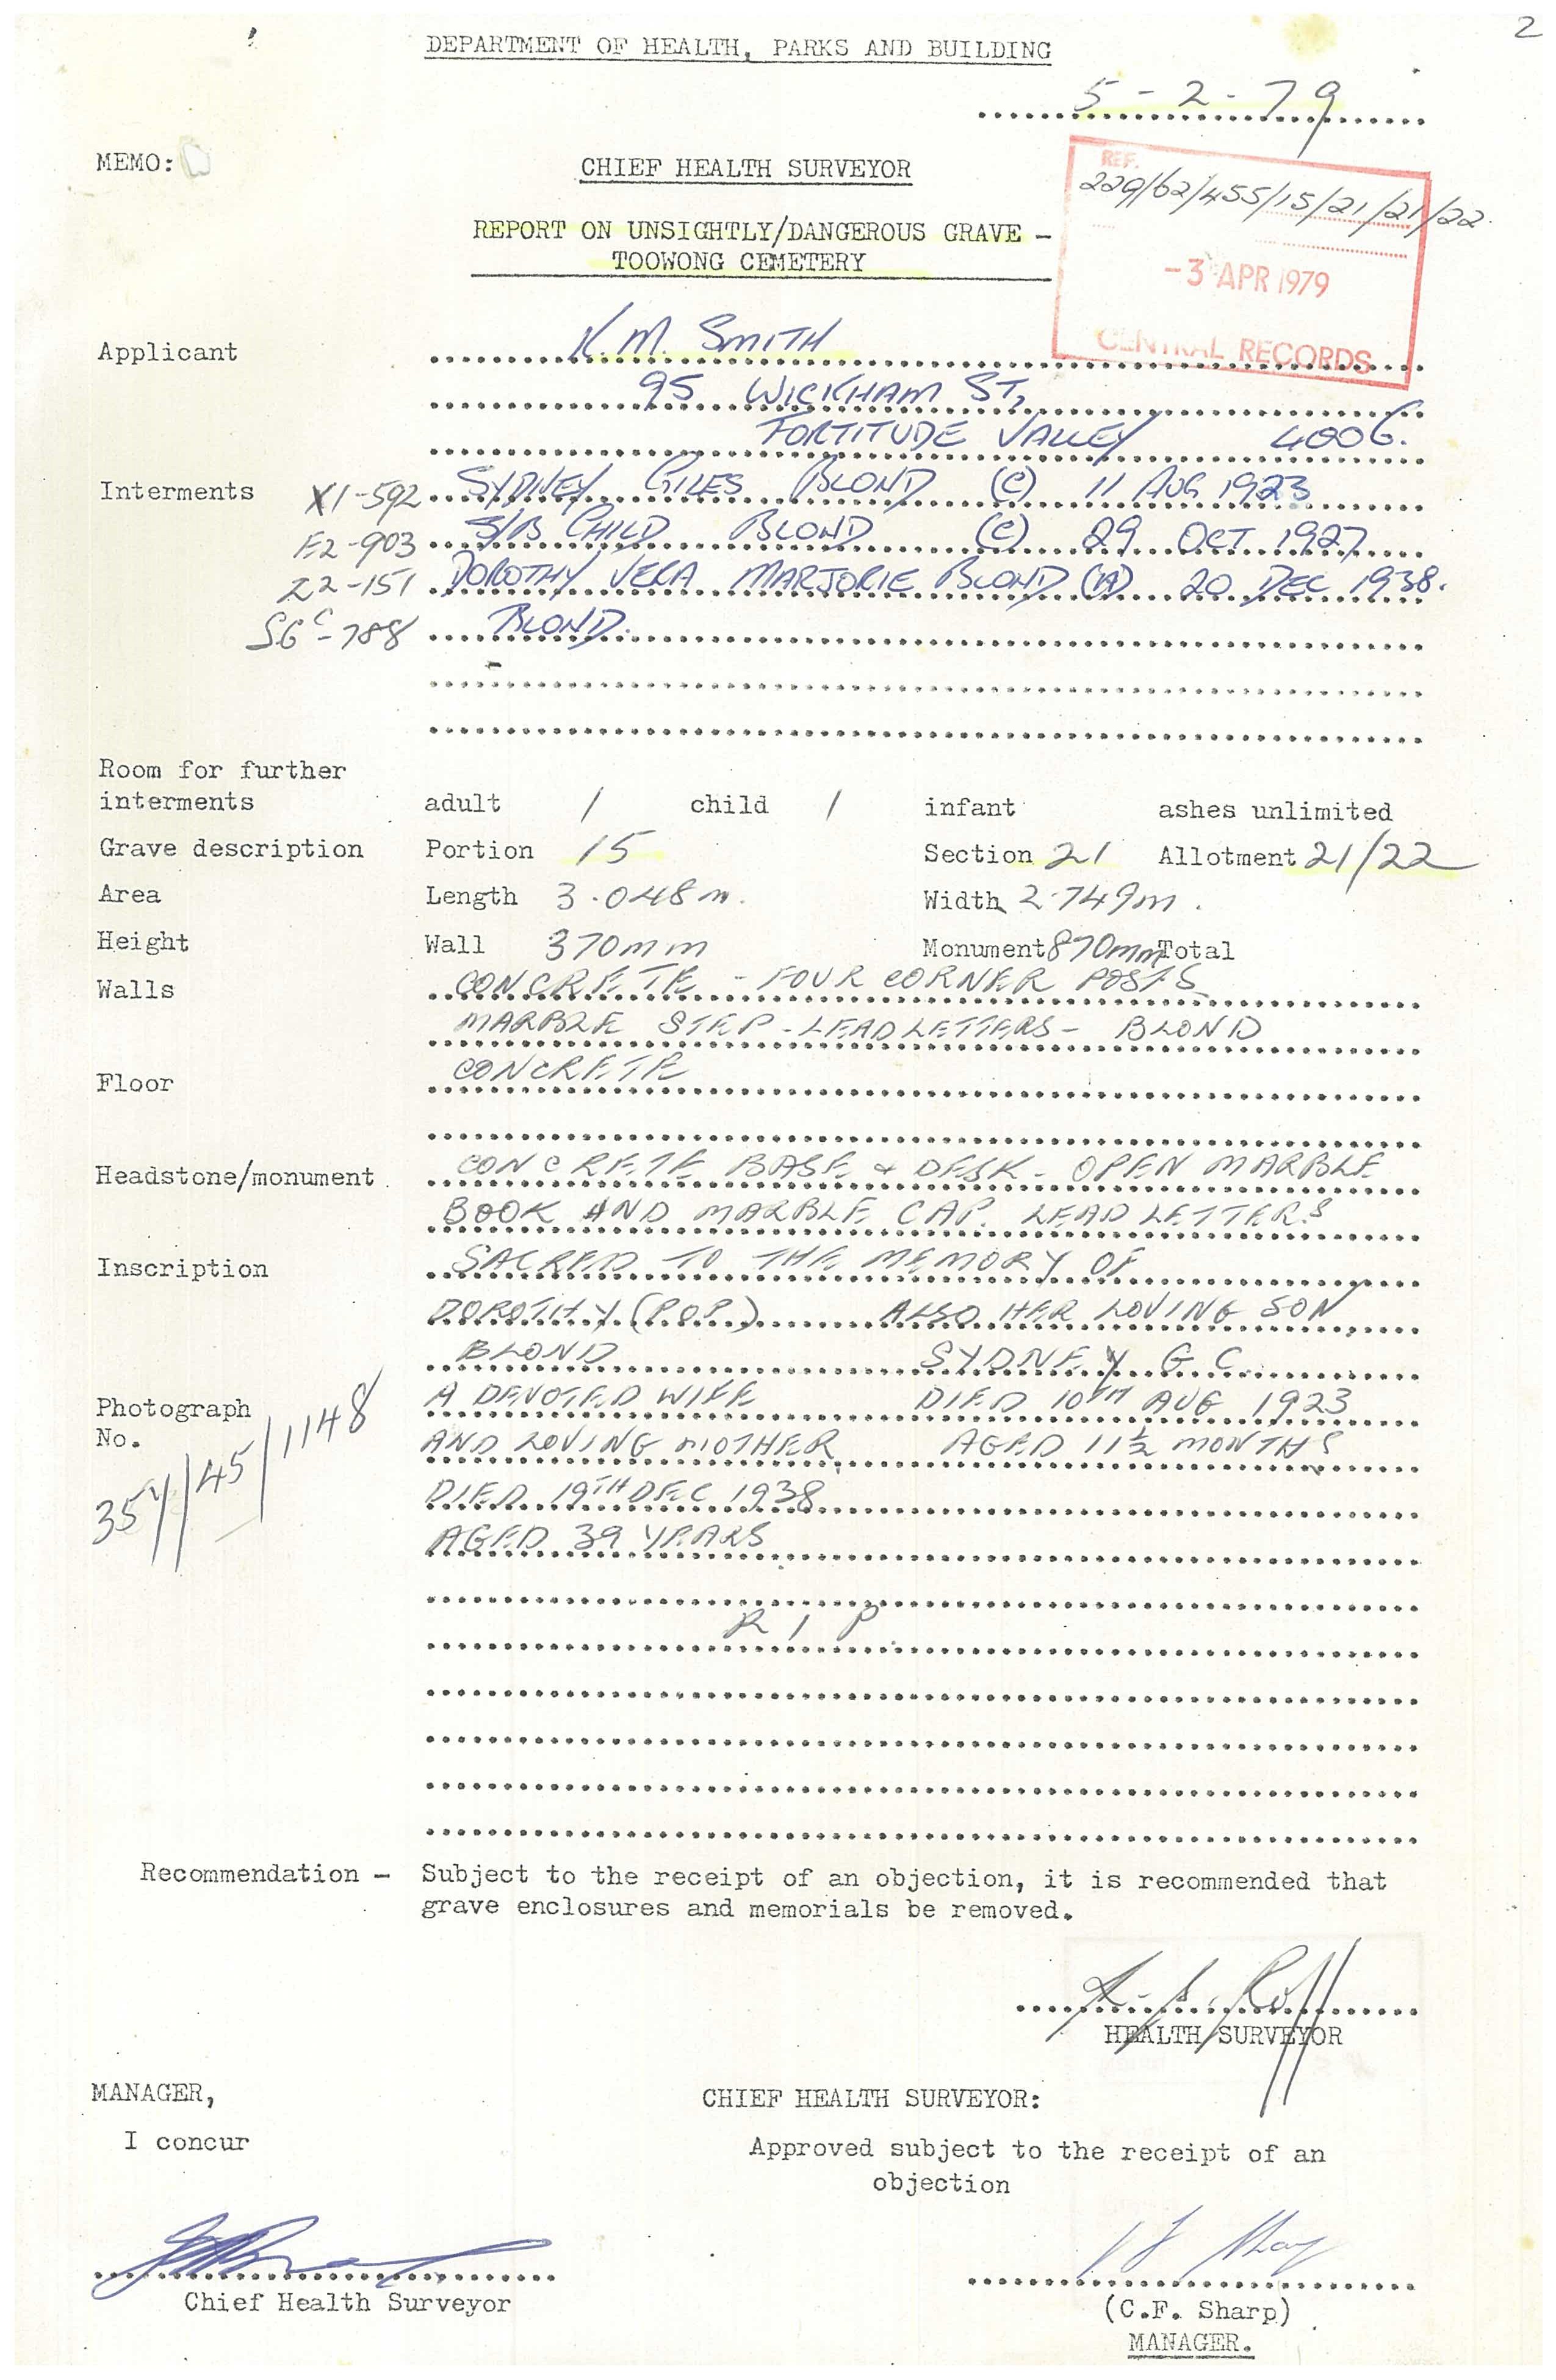 2
DEPARTMENT OF HEALTH, PARKS AND BUILDING
5-2-79
MEMO:
CHIEF HEALTH SURVEYOR
REF.
229/62/455/15/21/21/22.
REPORT ON UNSIGHTLY/DANGEROUS GRAVE -
TOOWONG CEMETERY
-3 APR 1979
CENTRAL RECORDS
Applicant K.M. SMITH
95 WICKHAM ST,
FORTITUDE VALLEY 4006.
Interments X1-592 SYDNEY GILES BLOND (C) 11 AUG 1923
F2-903 S/B CHILD BLOND (C) 29 OCT 1927
Z2-151 DOROTHY VERA MARJORIE BLOND (A) 20 DEC 1938.
SGC-788 BLOND.
Room for further
interments adult / child / infant ashes unlimited
Grave description Portion 15 Section 21 Allotment 21/22
Area Length 3.048m. Width 2.749m.
Height Wall 370mm Monument 870mm Total
Walls CONCRETE - FOUR CORNER POSTS
MARBLE STEP - LEAD LETTERS - BLOND
Floor CONCRETE
Headstone/monument. CONCRETE BASE & DESK - OPEN MARBLE
BOOK AND MARBLE CAP. LEAD LETTERS
Inscription SACRED TO THE MEMORY OF
DOROTHY (POP) ALSO HER LOVING SON
BLOND SYDNEY G C
Photograph A DEVOTED WIFE DIED 10TH AUG 1923
No. AND LOVING MOTHER AGED 11½ MONTHS
DIED 19TH DEC 1938
AGED 39 YEARS
R I P
Recommendation - Subject to the receipt of an objection, it is recommended that
grave enclosures and memorials be removed.
HEALTH SURVEYOR
MANAGER, CHIEF HEALTH SURVEYOR:
I concur Approved subject to the receipt of an
objection
Chief Health Surveyor (C.F. Sharp)
MANAGER.